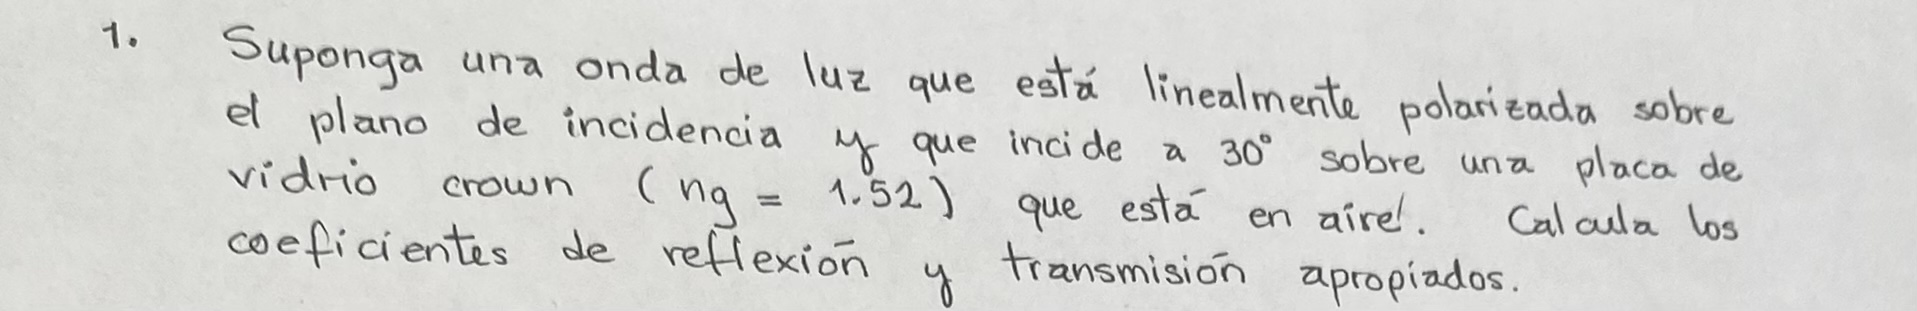 1. Suponga una onda de luz que está linealmente polarizada sobre
el plano de incidencia y que incide a 30° sobre una placa de
vidrio crown (ng = 1.52) que está en aire. Calcula los
coeficientes de reflexión y transmisión apropiados.